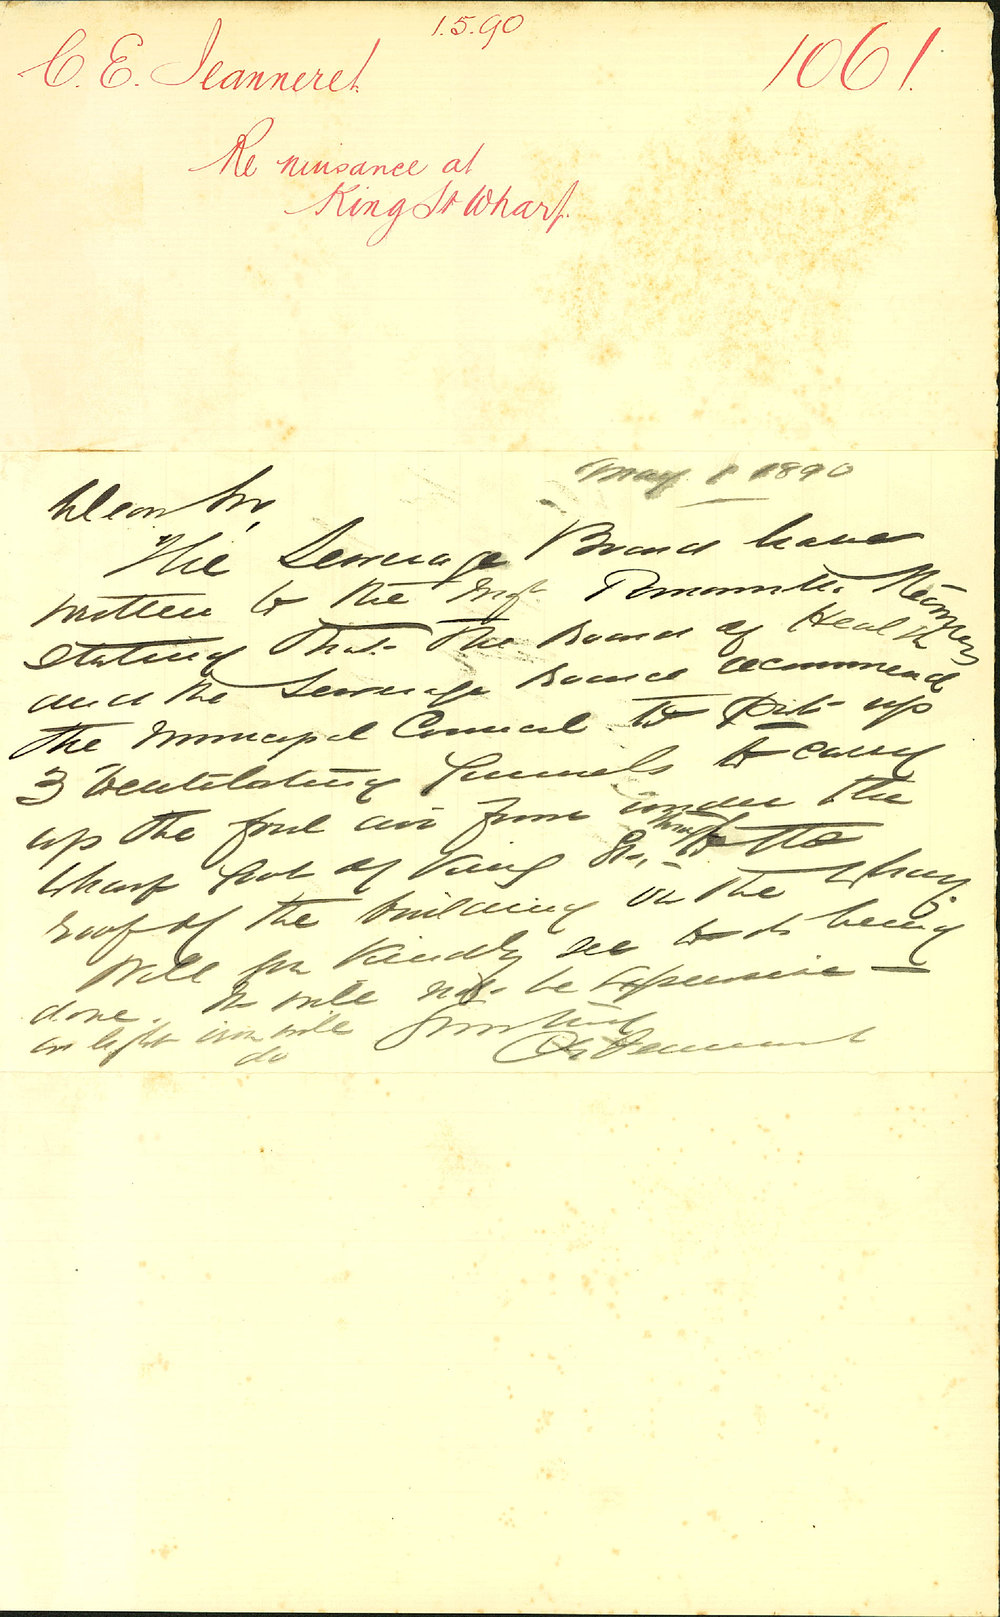 1.5.90
C. E. Jeanneret
1061.
Re nuisance at
King St Wharf.
May 1 1890
Dear Sir,
The Sewerage Board have
written to the Parramatta Steamers
stating that the Board of Health
and the Sewerage Board recommend
the Municipal Council to put up
3 ventilating funnels to carry
up the foul air from under the
Wharf foot of King St, to the
roof of the building on the Wharf.
Will you kindly see to its being
done. It will not be expensive —
as light iron will
do
Yours truly
C E Jeanneret